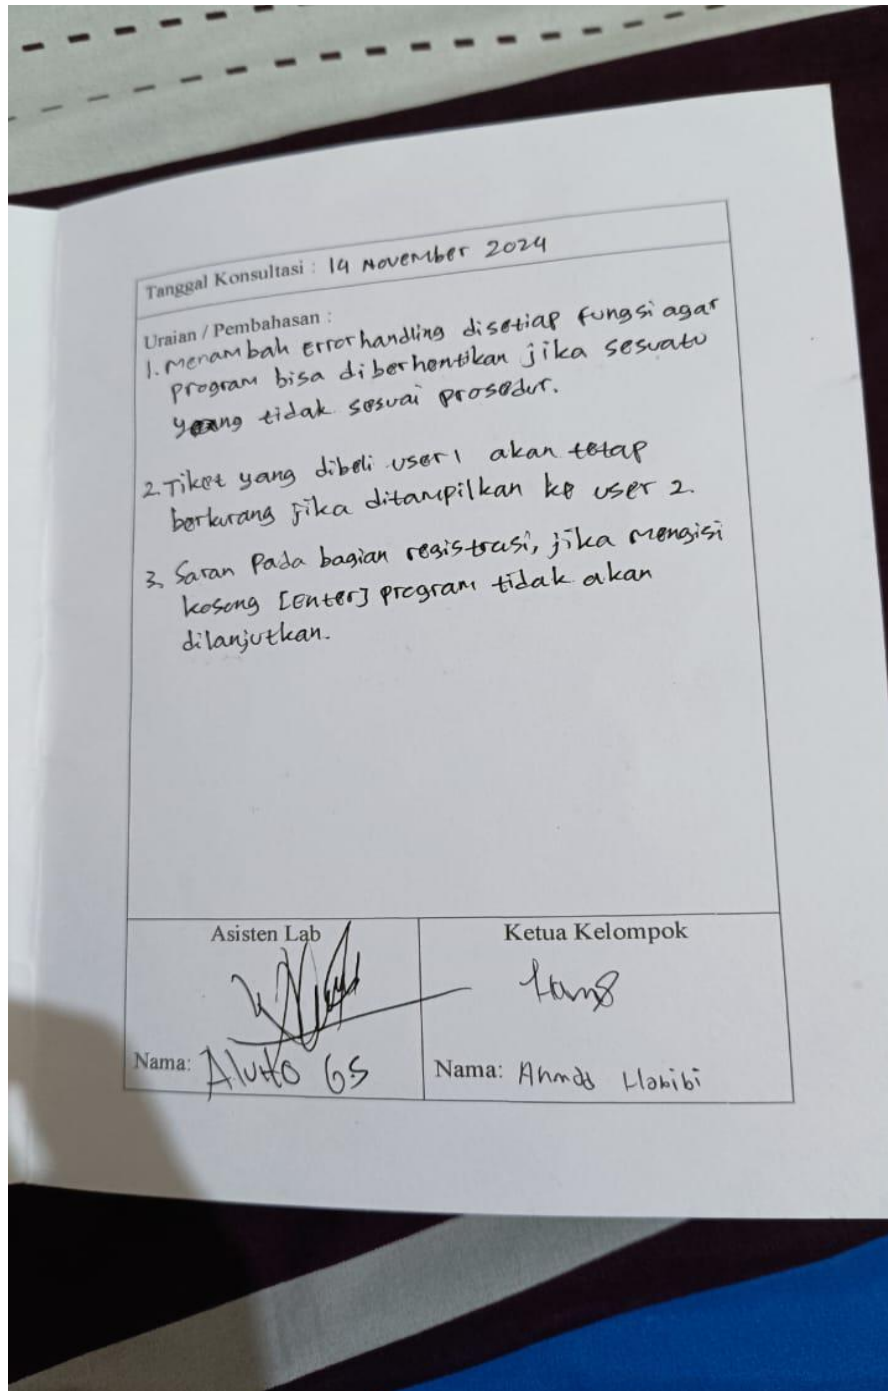 Tanggal Konsultasi : 14 November 2024
Uraian / Pembahasan :
1. Menambah errorhandling disetiap fungsi agar
program bisa diberhentikan jika sesuatu
yang tidak sesuai prosedur.
2. Tiket yang dibeli user1 akan tetap
berkurang jika ditampilkan ke user 2.
3. Saran Pada bagian registrasi, jika mengisi
kosong [Enter] program tidak akan
dilanjutkan.
Asisten Lab
Ketua Kelompok
Nama: GS
Nama: Ahmad Habibi